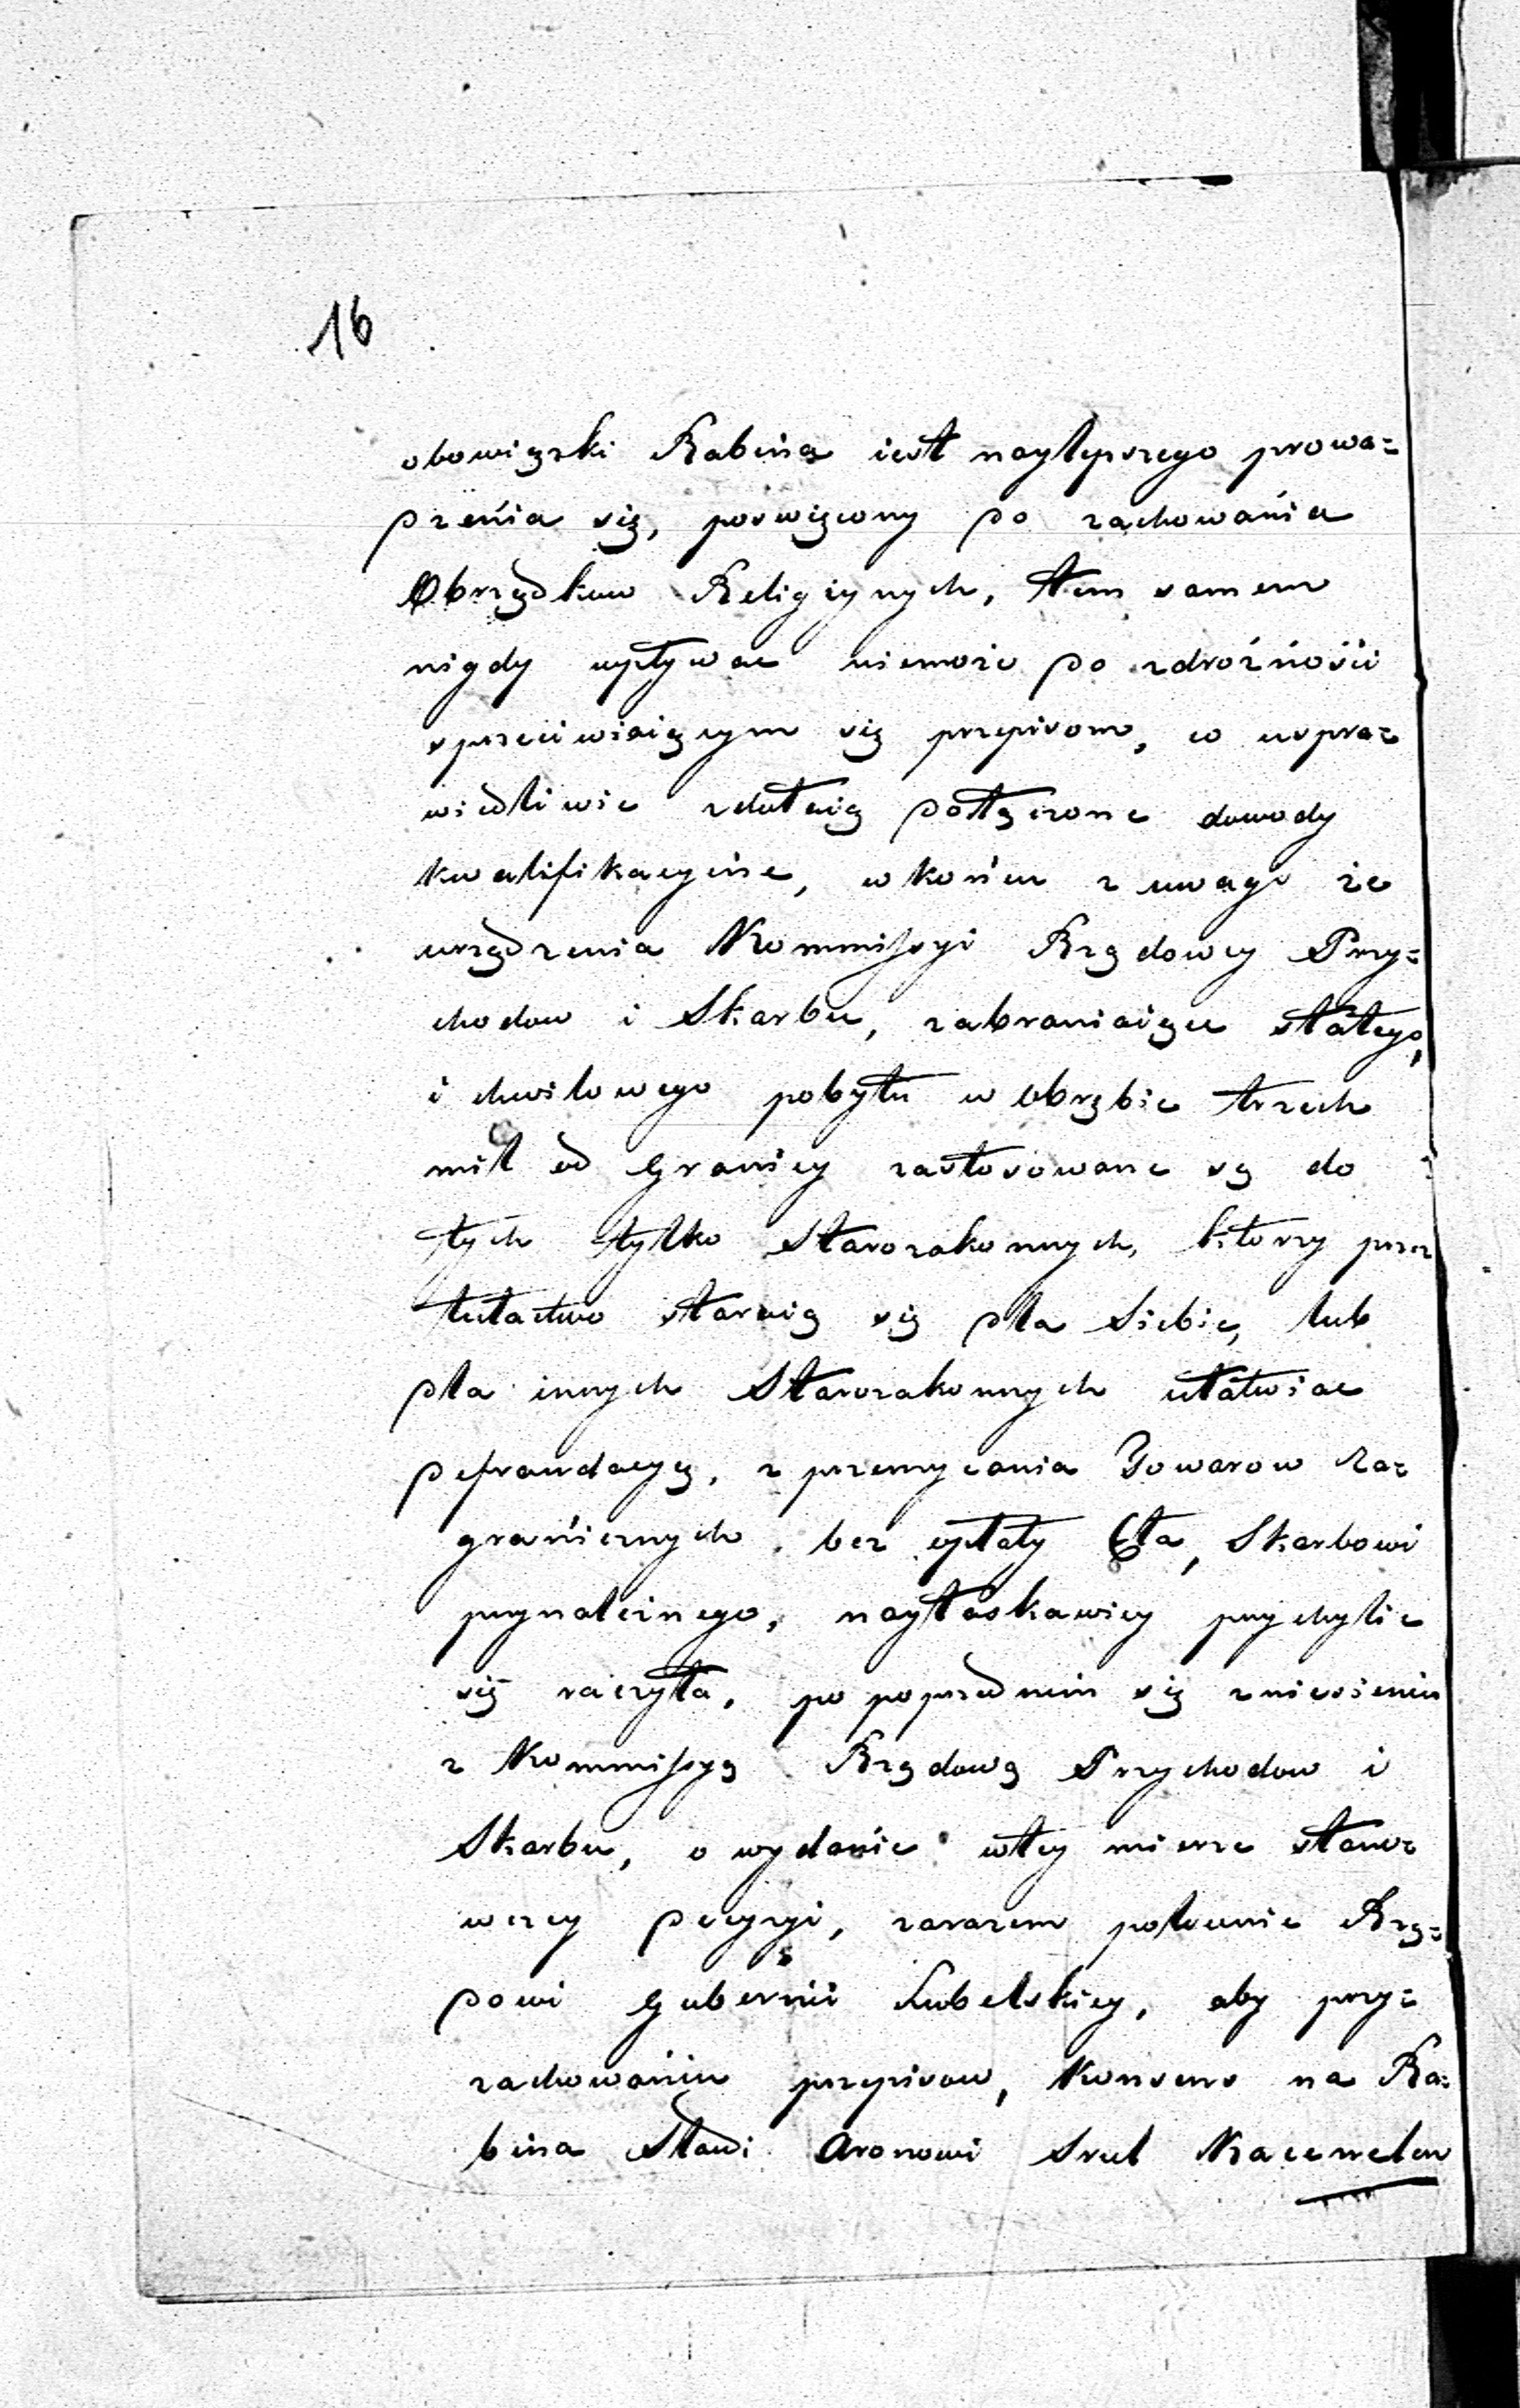 16
obowiązki Rabina iest naylepszego prowa=
dzenia się, poswięcony do zachowania
Obrządkow Religiynych, tem samem
nigdy wpływac niemoże do zdrożności
sprzeciwiaiącym się przepisom, co uspra=
wiedliwić zdołaią dołączone dowody
kwalifikacyine, w końcu z uwagi że
urządzenia Kommissyi Rządowey Przy=
chodow i Skarbu, zabraniaiące stałego,
i chwilowego pobytu w obrębie trzech
mil od Granicy zastosowane są do
tych tylko Starozakonnych, ktorzy przez
tułactwo staraią się dla Siebie, lub
dla innych Starozakonnych ułatwiac
defraudacyą, z przemycania Towarow Za=
granicznych, bez opłaty Cła, Skarbowi
przynależnego, nayłaskawiey przychylic
się raczyła, po poprzednim się zniesieniu
z Kommissyą Rządową Przychodow i
Skarbu, o wydanie wtey mierze stano=
wczey decyzyi, zarazem polecenie Rzą=
dowi Gubernii Lubelskiey, aby przy=
zachowaniu przepisow, Konsens na Ra=
bina Stawi Aronowi Srul